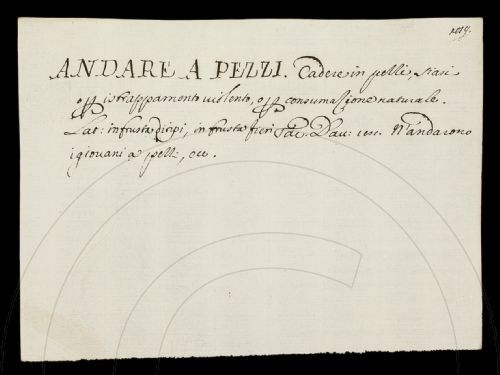 ANDARE A PEZZI. Cadere in pezzi, siasi
p istrappamento violento, o p consumazione naturale.
Lat: in frusta diripi, in frusta fieri Tac. Dav: N'andarono
i giovani a pezzi, ec.